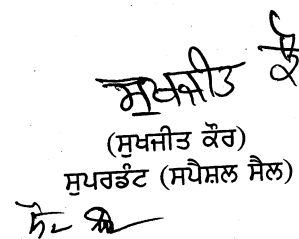 ਸੁਖਜੀਤ ਕੌ
(ਸੁਖਜੀਤ ਕੌਰ)
ਸੁਪਰਡੰਟ (ਸਪੈਸ਼ਲ ਸੈਲ)